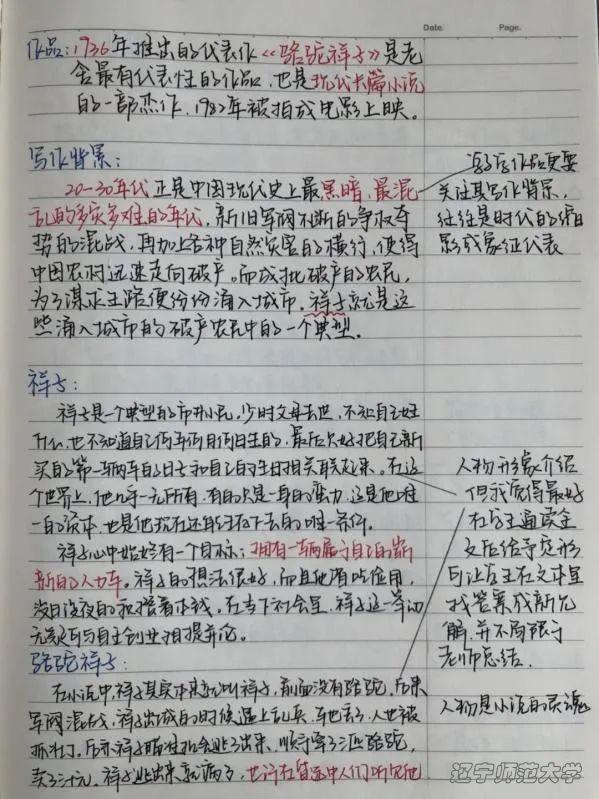 Date.
Page.
作品：1936年推出的代表作《骆驼祥子》是老
舍最有代表性的作品，也是现代长篇小说
的一部杰作，1982年被拍成电影上映。
写作背景：
20-30年代正是中国现代史上最黑暗、最混
乱的多灾多难的年代，新旧军阀不断的争权夺
势的混战，再加上各种自然灾害的横行，使得
中国农村迅速走向破产。而成批破产的农民，
为了谋求生路便份份涌入城市，祥子就是这
些涌入城市的破产农民中的一个典型。
作品更要
关注其写作背景，
往往是时代的缩
影或象征代表
祥子：
祥子是一个典型的市井小民，少时父母去世，不知自己姓
什么，也不知道自己何年何月何日生的，最后只好把自己新
买的第一辆车的日子和自己的生日相关联起来。在这
个世界上，他几乎一无所有，有的只是一身的蛮力，这是他唯
一的资本，也是他现在还能活下去的唯一条件。
祥子心中始终有一个目标：拥有一辆属于自己的崭
新的人力车。祥子的想法很好，而且他省吃俭用，
没日没夜的积攒着本钱。在当下社会里，祥子这一举动
无疑可与自主创业相提并论。
人物形象介绍
但我觉得最好
在学生通读全
文后给予交流
可让学生在文本里
找答案或新见
解，并不局限于
老师总结。
骆驼祥子：
在小说中，祥子其实本来就叫祥子，前面没有骆驼，后来
军阀混战，祥子出城的时候遇上乱兵，车也丢了，人也被
抓走了。后来祥子瞅准机会逃了出来，顺手牵了三匹骆驼，
卖了三十元。祥子逃出来就病了，也许在昏迷中人们听见他
人物是小说的灵魂
辽宁师范大学